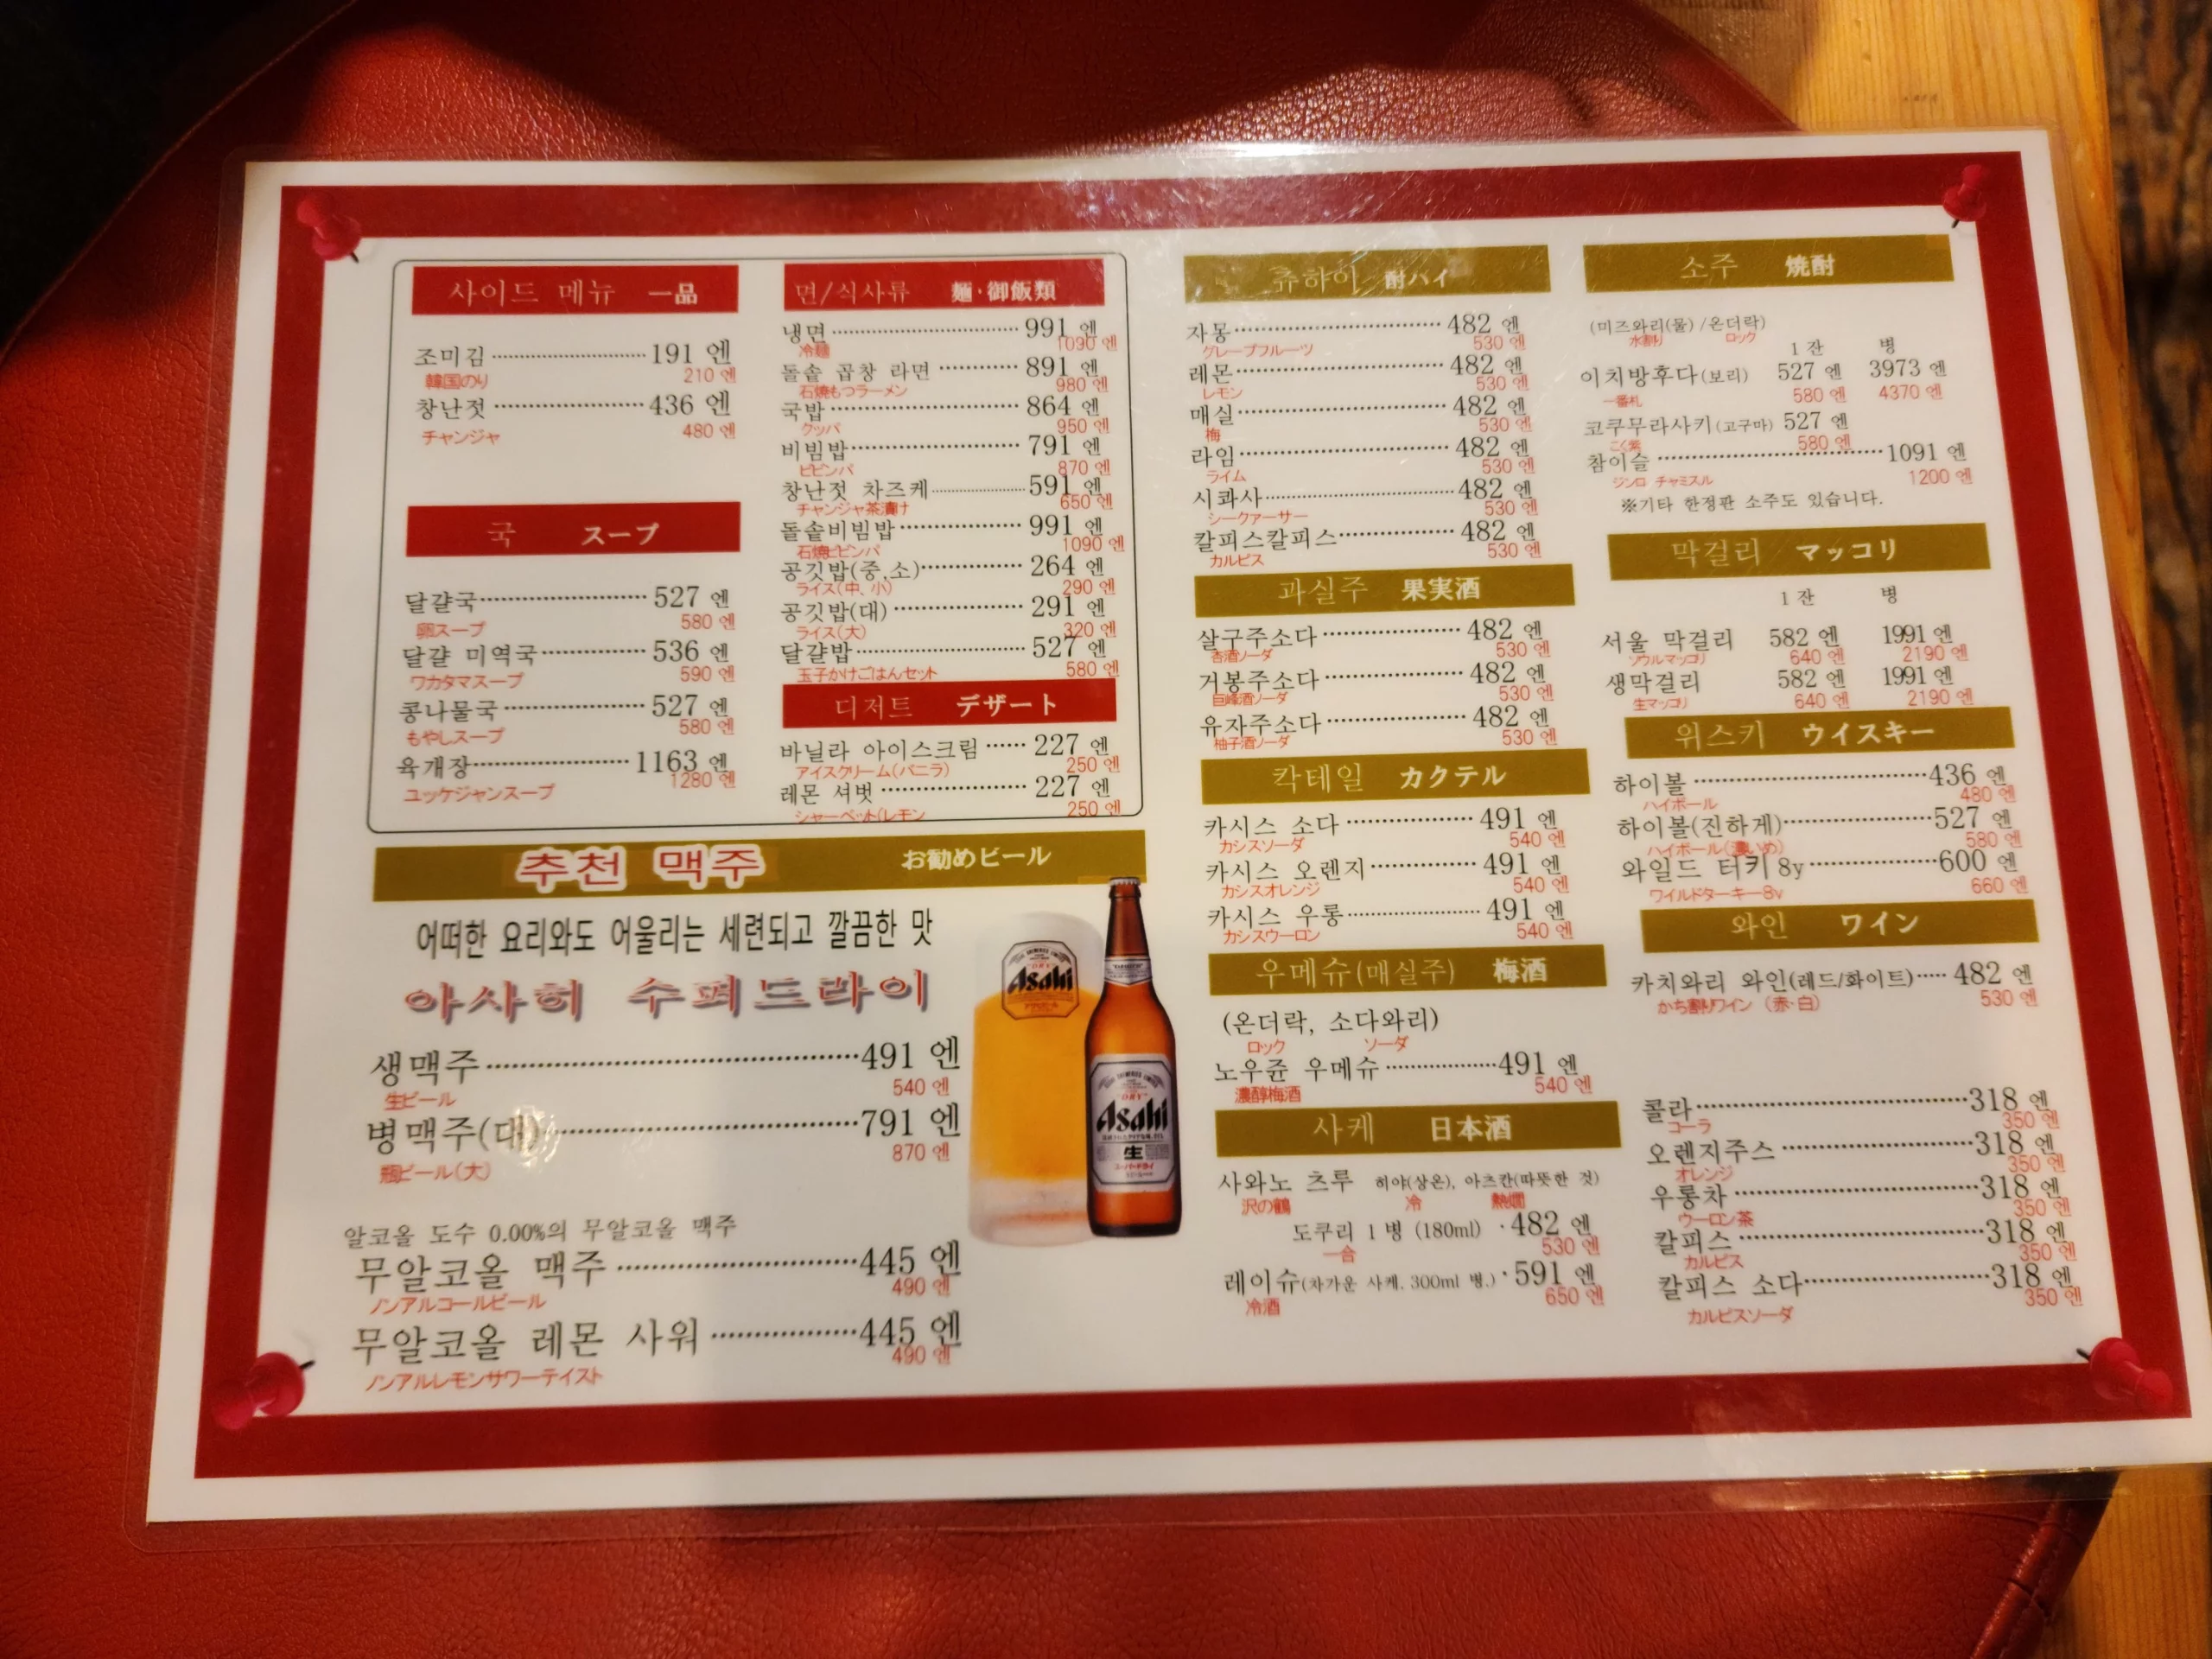 사이드 메뉴 一品
조미김 191 엔
韓国のり 210 엔
창난젓 436 엔
チャンジャ 480 엔
국 スープ
달걀국 527 엔
卵スープ 580 엔
달걀 미역국 536 엔
ワカタマスープ 590 엔
콩나물국 527 엔
もやしスープ 580 엔
육개장 1163 엔
ユッケジャンスープ 1280 엔
면/식사류 麺・御飯類
냉면 991 엔
冷麺 1090 엔
돌솥 곱창 라면 891 엔
石焼もつラーメン 980 엔
국밥 864 엔
クッパ 950 엔
비빔밥 791 엔
ビビンパ 870 엔
창난젓 차즈케 591 엔
チャンジャ茶漬け 650 엔
돌솥비빔밥 991 엔
石焼ビビンパ 1090 엔
공깃밥(중,소) 264 엔
ライス(中、小) 290 엔
공깃밥(대) 291 엔
ライス(大) 320 엔
달걀밥 527 엔
玉子かけごはんセット 580 엔
디저트 デザート
바닐라 아이스크림 227 엔
アイスクリーム(バニラ) 250 엔
레몬 셔벗 227 엔
シャーベット(レモン 250 엔
추천 맥주 お勧めビール
어떠한 요리와도 어울리는 세련되고 깔끔한 맛
아사히 수퍼드라이
생맥주 491 엔
生ビール 540 엔
병맥주(대) 791 엔
瓶ビール(大) 870 엔
알코올 도수 0.00%의 무알코올 맥주
무알코올 맥주 445 엔
ノンアルコールビール 490 엔
무알코올 레몬 사워 445 엔
ノンアルレモンサワーテイスト 490 엔
Asahi
"DRY"
Asahi
生
スーパードライ
츄하이 酎ハイ
자몽 482 엔
グレープフルーツ 530 엔
레몬 482 엔
レモン 530 엔
매실 482 엔
梅 530 엔
라임 482 엔
ライム 530 엔
시콰사 482 엔
シークァーサー 530 엔
칼피스칼피스 482 엔
カルピス 530 엔
과실주 果実酒
살구주소다 482 엔
杏酒ソーダ 530 엔
거봉주소다 482 엔
巨峰酒ソーダ 530 엔
유자주소다 482 엔
柚子酒ソーダ 530 엔
칵테일 カクテル
카시스 소다 491 엔
カシスソーダ 540 엔
카시스 오렌지 491 엔
カシスオレンジ 540 엔
카시스 우롱 491 엔
カシスウーロン 540 엔
우메슈(매실주) 梅酒
(온더락, 소다와리)
ロック ソーダ
노우쥰 우메슈 491 엔
濃醇梅酒 540 엔
사케 日本酒
사와노 츠루 히야(상온), 아츠칸(따뜻한 것)
沢の鶴 冷 熱燗
도쿠리 1 병 (180ml) 482 엔
一合 530 엔
레이슈(차가운 사케. 300ml 병.) 591 엔
冷酒 650 엔
소주 焼酎
(미즈와리(물) /온더락)
水割り ロック
1 잔 병
이치방후다(보리) 527 엔 3973 엔
一番札 580 엔 4370 엔
코쿠무라사키(고구마) 527 엔
こく紫 580 엔
참이슬 1091 엔
ジンロ チャミスル 1200 엔
※기타 한정판 소주도 있습니다.
막걸리 マッコリ
1 잔 병
서울 막걸리 582 엔 1991 엔
ソウルマッコリ 640 엔 2190 엔
생막걸리 582 엔 1991 엔
生マッコリ 640 엔 2190 엔
위스키 ウイスキー
하이볼 436 엔
ハイボール 480 엔
하이볼(진하게) 527 엔
ハイボール(濃いめ) 580 엔
와일드 터키 8y 600 엔
ワイルドターキー8y 660 엔
와인 ワイン
카치와리 와인(레드/화이트) 482 엔
かち割りワイン (赤・白) 530 엔
콜라 318 엔
コーラ 350 엔
오렌지주스 318 엔
オレンジ 350 엔
우롱차 318 엔
ウーロン茶 350 엔
칼피스 318 엔
カルピス 350 엔
칼피스 소다 318 엔
カルピスソーダ 350 엔